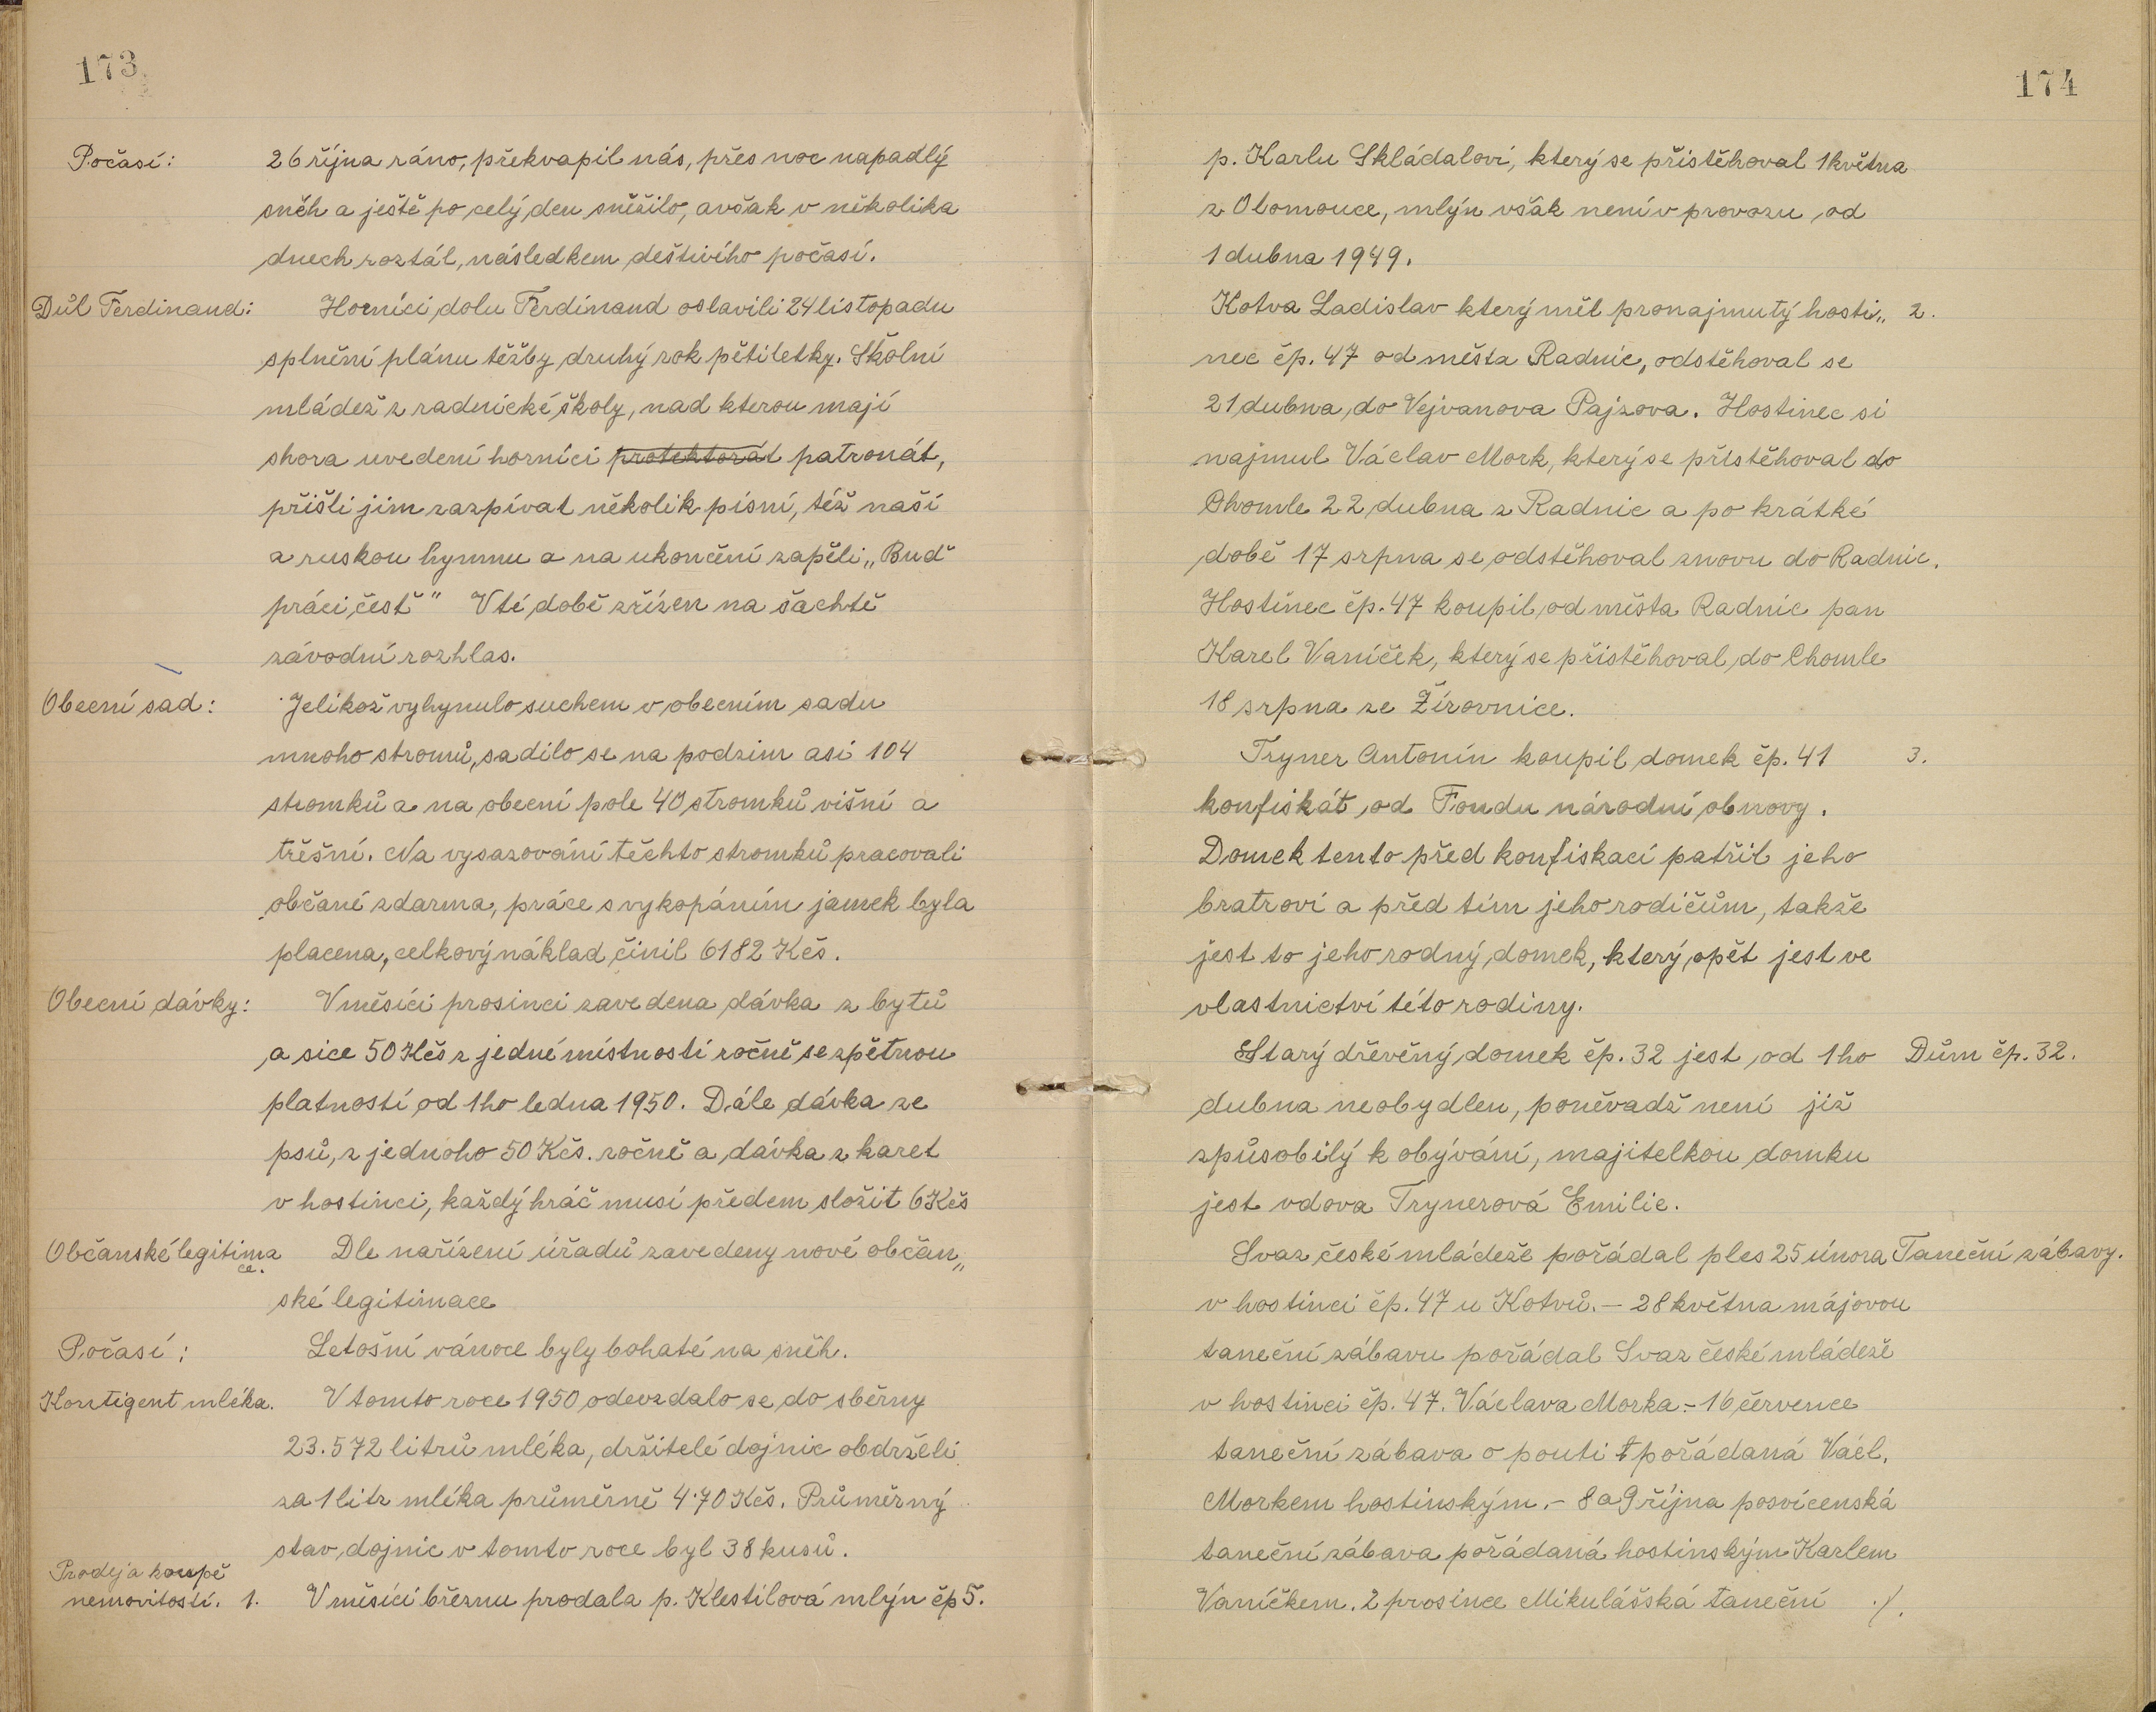 173
Počasí: 26 října ráno, překvapil nás, přes noc napadlý
sněh a ještě po celý den sněžilo, avšak v několika
dnech roztál, následkem deštivího počasí.
Důl Ferdinand: Horníci dolu Ferdinand oslavili 24 listopadu
splnění plánu těžby druhý rok pětiletky. Školní
mládež z radnické školy, nad kterou mají
shora uvedení horníci protektorát patronát,
přišli jim zazpívat několik písní, též naší
a ruskou hymnu a na ukončení zapěli „Buď
práci čest" V té době zřízen na šachtě
závodní rozhlas.
Obecní sad: Jelikož vyhynulo suchem v obecním sadu
mnoho stromů, sadilo se na podzim asi 104
stromků a na obecní pole 40 stromků višní a
třěšní. Na vysazování těchto stromků pracovali
občané zdarma, práce s vykopáním jamek byla
placena, celkový náklad činil 6182 Kčs.
Obecní dávky: V měsíci prosinci zavedena dávka z bytů
a sice 50 Kčs z jedné místnosti ročně se zpětnou
platností od 1ho ledna 1950. Dále dávka ze
psů, z jednoho 50 Kčs. ročně a dávka z karet
v hostinci, každý hráč musí předem složit 6 Kčs
Občanské legitima Dle nařízení úřadů zavedeny nové občan„
ce.
ské legitimace
Počasí: Letošní vánoce byly bohaté na sněh.
Kontigent mléka. V tomto roce 1950 odevzdalo se do sběrny
23.572 litrů mléka, držitelé dojnic obdrželi
za 1 litr mléka průměrně 4·70 Kčs. Průměrný
stav dojnic v tomto roce byl 38 kusů.
Prodej a koupě
nemovitostí. 1. V měsíci březnu prodala p. Klestilová mlýn čp 5.
174
p. Karlu Skládalovi, který se přistěhoval 1 května
z Olomouce, mlýn však není v provozu od
1 dubna 1949.
Kotva Ladislav který měl pronajmutý hosti„ 2.
nec čp. 47 od města Radnic, odstěhoval se
21 dubna do Vejvanova Pajzova. Hostinec si
najmul Václav Mork, který se přistěhoval do
Chomle 22 dubna z Radnic a po krátké
době 17 srpna se odstěhoval znovu do Radnic.
Hostinec čp. 47 koupil od města Radnic pan
Karel Vaníček, který se přistěhoval do Chomle
18 srpna ze Žirovnice.
Tryner Antonín koupil domek čp. 41 3.
konfiskát od Fondu národní obnovy.
Domek tento před konfiskací patřil jeho
bratrovi a před tím jeho rodičům, takže
jest to jeho rodný domek, který opět jest ve
vlastnictví této rodiny.
Starý dřevěný domek čp. 32 jest od 1ho Dům čp. 32.
dubna neobydlen, poněvadž není již
způsobilý k obývání, majitelkou domku
jest vdova Trynerová Emilie.
Svaz české mládeže pořádal ples 25 února Taneční zábavy.
v hostinci čp. 47 u Kotvů. – 28 května májovou
taneční zábavu pořádal Svaz české mládeže
v hostinci čp. 47. Václava Morka. – 16 července
taneční zábava o pouti pořádaná Václ.
Morkem hostinským. – 8 a 9 října posvícenská
taneční zábava pořádaná hostinským Karlem
Vaníčkem. 2 prosince Mikulášská taneční ./.